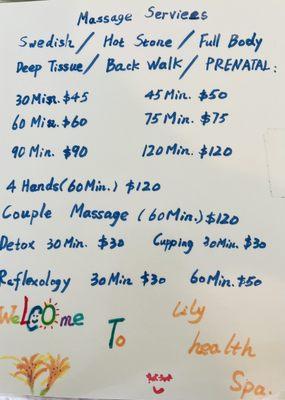 Massage Services
Swedish / Hot Stone / Full Body
Deep Tissue / Back Walk / PRENATAL:
30 Min. $45 45 Min. $50
60 Min. $60 75 Min. $75
90 Min. $90 120 Min. $120
4 Hands (60 Min.) $120
Couple Massage (60 Min.) $120
Detox 30 Min. $30 Cupping 30 Min. $30
Reflexology 30 Min $30 60 Min. $50
WeLCOme
To
Lily
health
Spa.